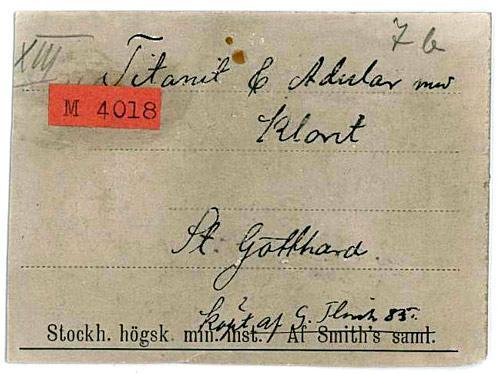 XIII 7b
Titanit & Adular med
M 4018
Klorit
St. Gotthard.
Köpt af G. 85.
Stockh. högsk. min. inst. Af Smith's saml.